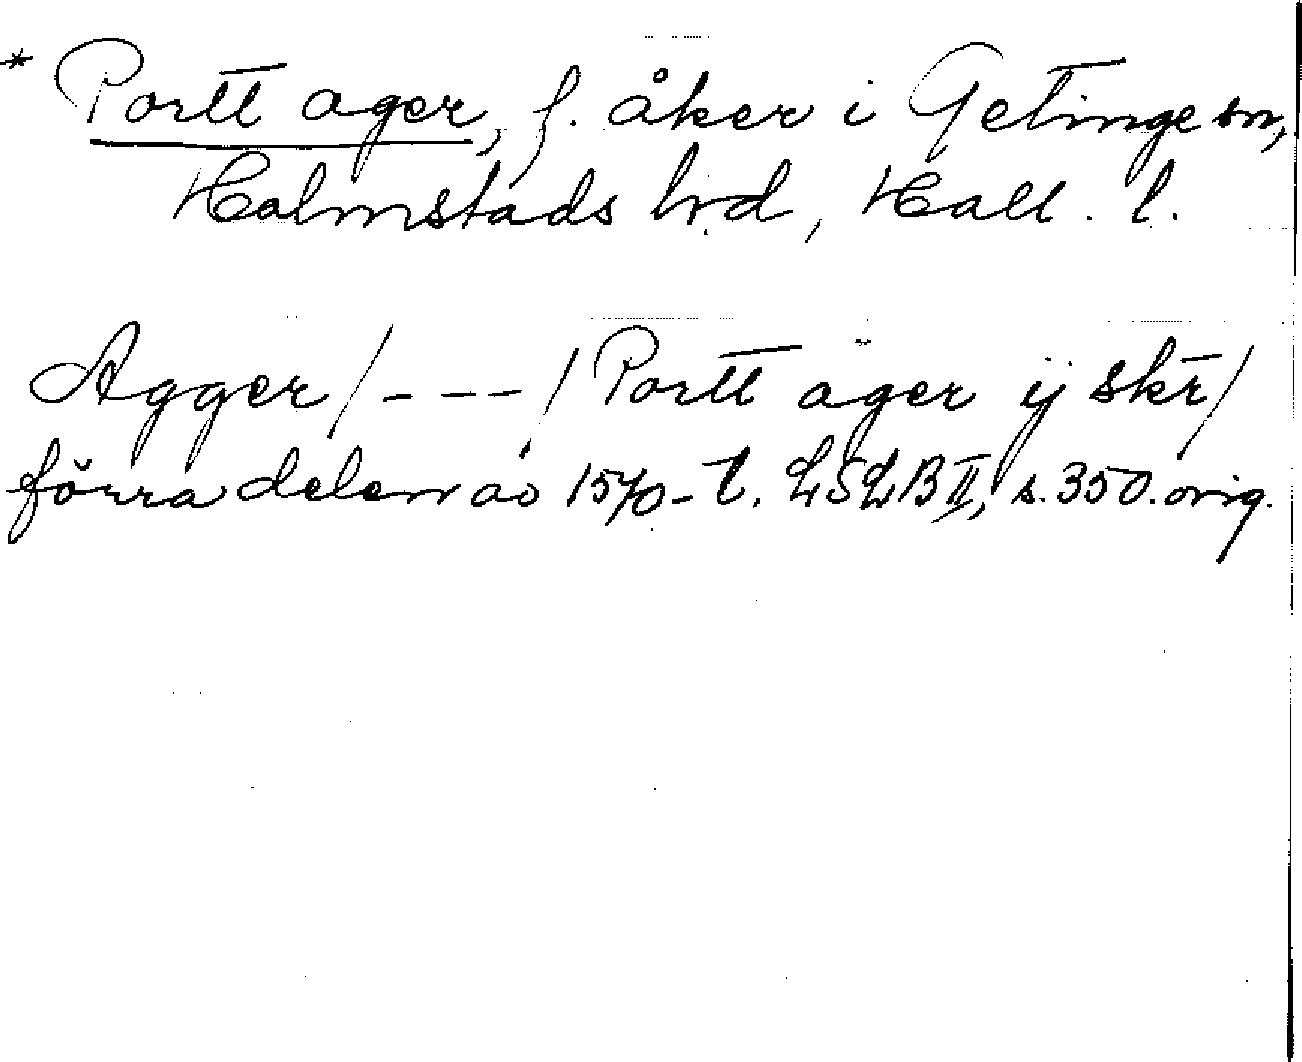 * Portt ager, f. åker i Getinge sn,
Halmstads hd, Hall. l.
Agger/---/Portt ager ij skr/
förra delen av 1570-t. LSLB II, s. 350. orig.